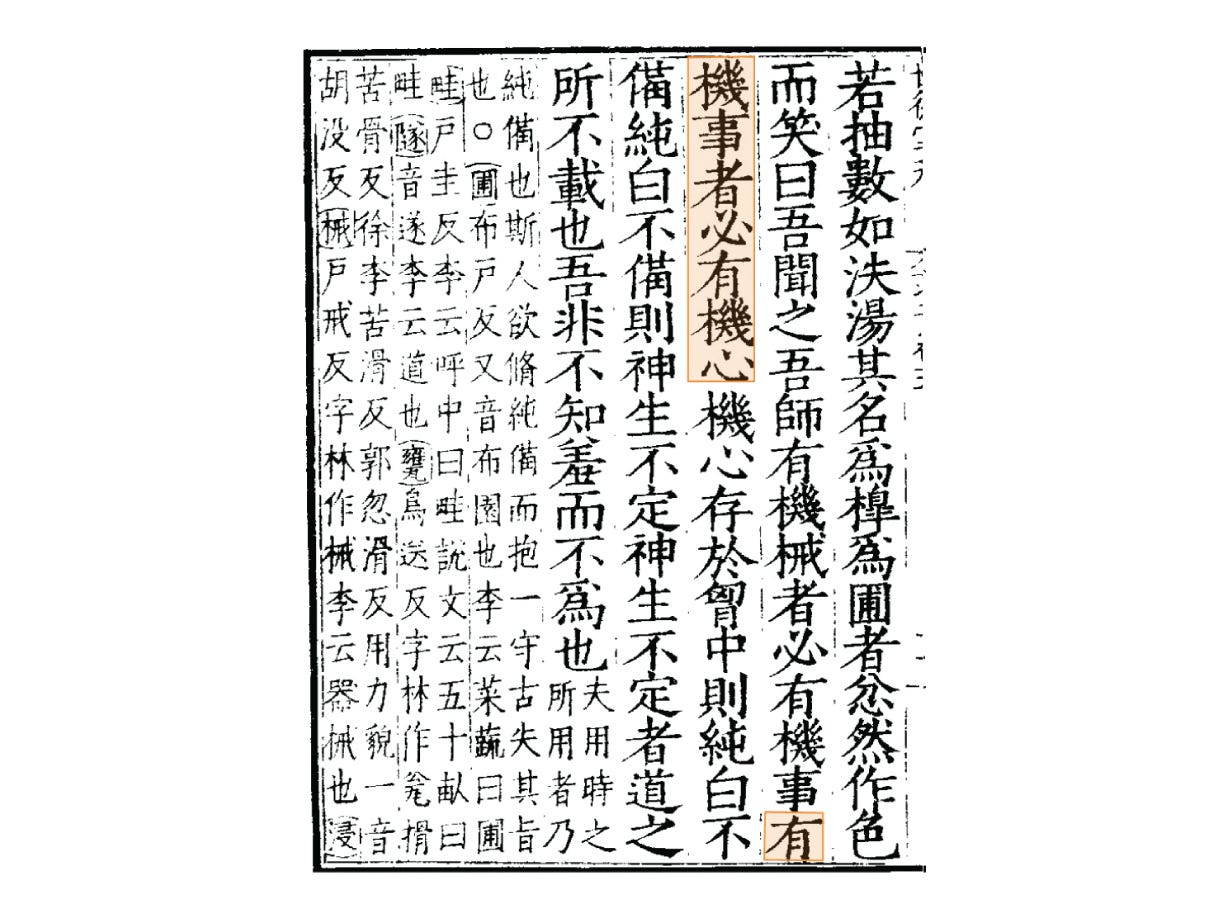 若抽數如泆湯其名爲槔爲圃者忿然作色
而笑曰吾聞之吾師有機械者必有機事有
機事者必有機心機心存於胷中則純白不
備純白不備則神生不定神生不定者道之
所不載也吾非不知羞而不爲也
夫用時之
所用者乃
純備也斯人欲脩純備而抱一守古失其旨
也○圃布戶反又音布園也李云菜蔬曰圃
畦戶圭反李云呼中曰畦說文云五十畝曰
畦隧音遂李云道也甕烏送反字林作瓮搰
苦骨反徐李苦滑反郭忽滑反用力貌一音
胡没反械戶戒反字林作械李云器械也浸